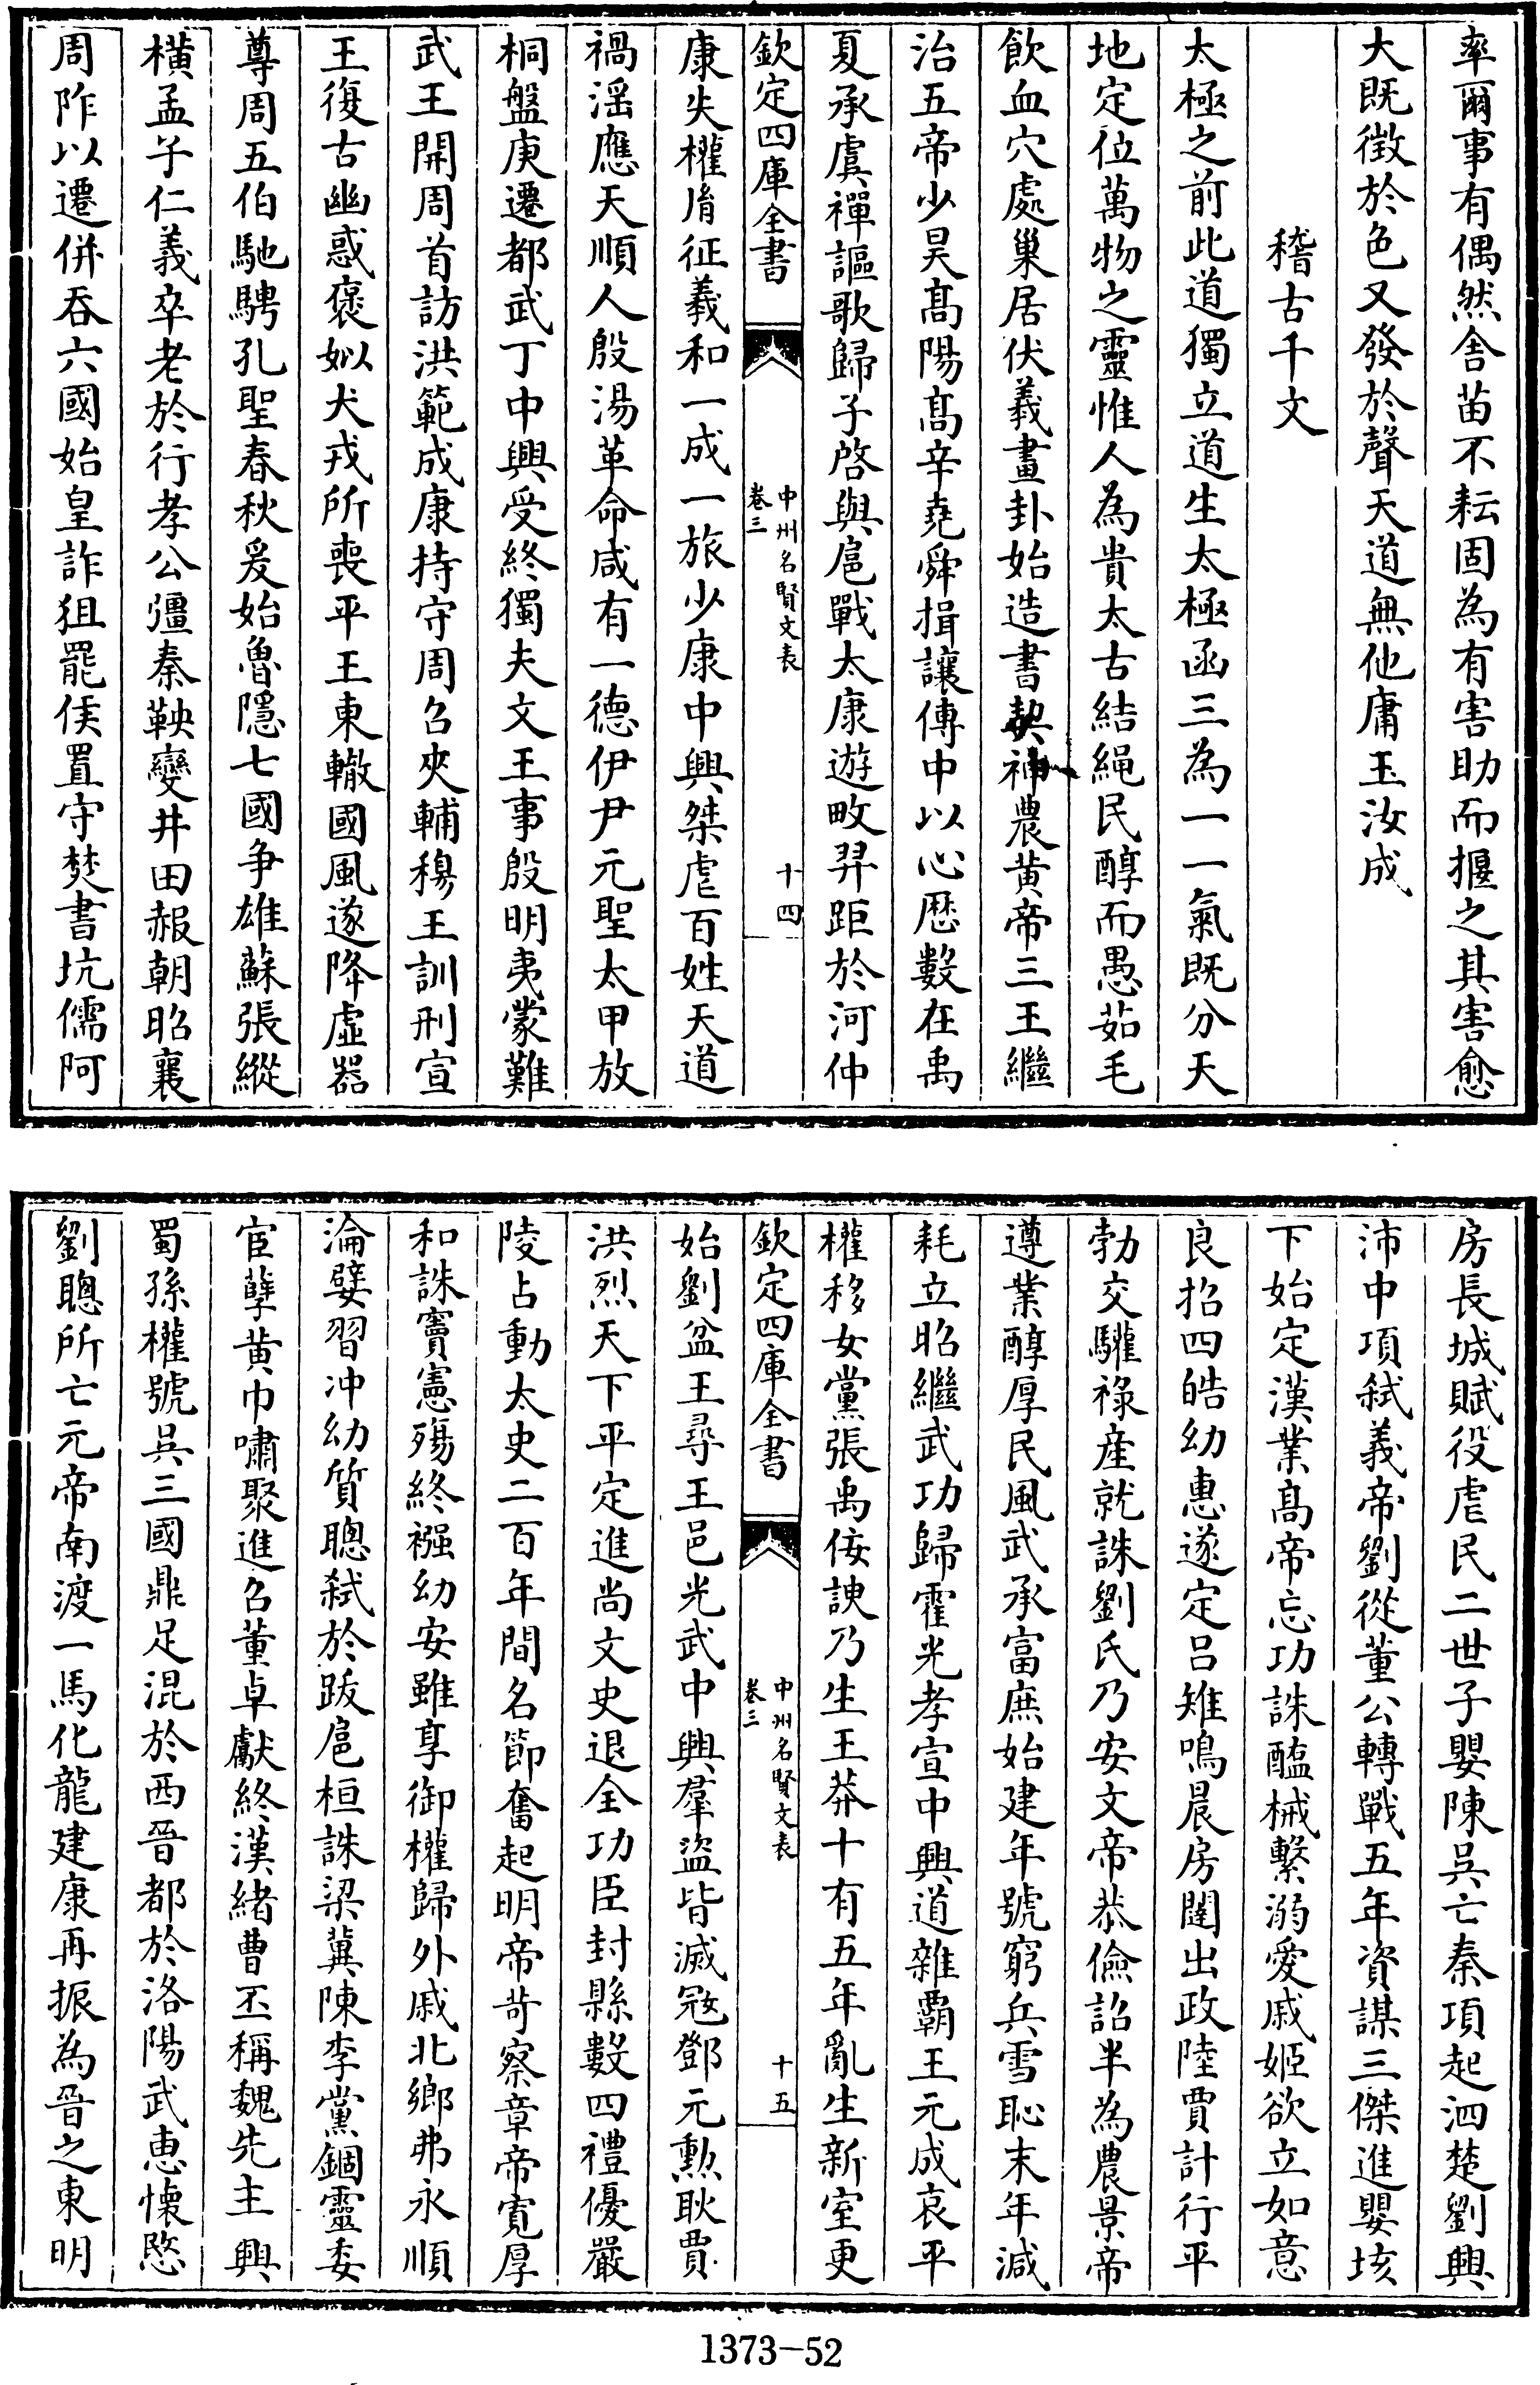 率爾事有偶然舍苗不耘固為有害助而揠之其害愈
大既徴於色又發於聲天道無他庸玉汝成
稽古千文
太極之前此道獨立道生太極函三為一一氣既分天
地定位萬物之靈惟人為貴太古結繩民醇而愚茹毛
飲血穴處巢居伏羲畫卦始造書契神農黄帝三王繼
治五帝少昊髙陽髙辛堯舜揖讓傳中以心厯數在禹
夏承虞禪謳歌歸子啓與扈戰太康遊畋羿距於河仲
欽定四庫全書
中州名賢文表
卷三
十四
康失權胤征羲和一成一旅少康中興桀虐百姓天道
禍淫應天順人殷湯革命咸有一德伊尹元聖太甲放
桐盤庚遷都武丁中興受終獨夫文王事殷明夷蒙難
武王開周首訪洪範成康持守周召夾輔穆王訓刑宣
王復古幽惑褒姒犬戎所喪平王東轍國風遂降虛器
尊周五伯馳騁孔聖春秋爰始魯隱七國争雄蘇張縱
橫孟子仁義卒老於行孝公彊秦鞅變井田赧朝昭襄
周阼以遷併吞六國始皇詐狙罷侯置守焚書坑儒阿
房長城賦役虐民二世子嬰陳吳亡秦項起泗楚劉興
沛中項弑義帝劉從董公轉戰五年資謀三傑進嬰垓
下始定漢業髙帝忘功誅醢械繫溺愛戚姬欲立如意
良招四皓幼惠遂定吕雉鳴晨房闥出政陸賈計行平
勃交驩祿産就誅劉氏乃安文帝恭儉詔半為農景帝
遵業醇厚民風武承富庶始建年號窮兵雪恥末年減
耗立昭繼武功歸霍光孝宣中興道雜霸王元成哀平
權移女黨張禹侫諛乃生王莽十有五年亂生新室更
欽定四庫全書
中州名賢文表
卷三
十五
始劉盆王尋王邑光武中興羣盜皆滅冦鄧元勲耿賈
洪烈天下平定進尚文史退全功臣封縣數四禮優嚴
陵占動太史二百年間名節奮起明帝苛察章帝寛厚
和誅竇憲殤終襁幼安雖享御權歸外戚北鄉弗永順
淪嬖習冲幼質聰弑於跋扈桓誅梁冀陳李黨錮靈委
宦孽黄巾嘯聚進召董卓獻終漢緒曹丕稱魏先主興
蜀孫權號吳三國鼎足混於西晉都於洛陽武惠懷愍
劉聰所亡元帝南渡一馬化龍建康再振為晉之東明
1373-52